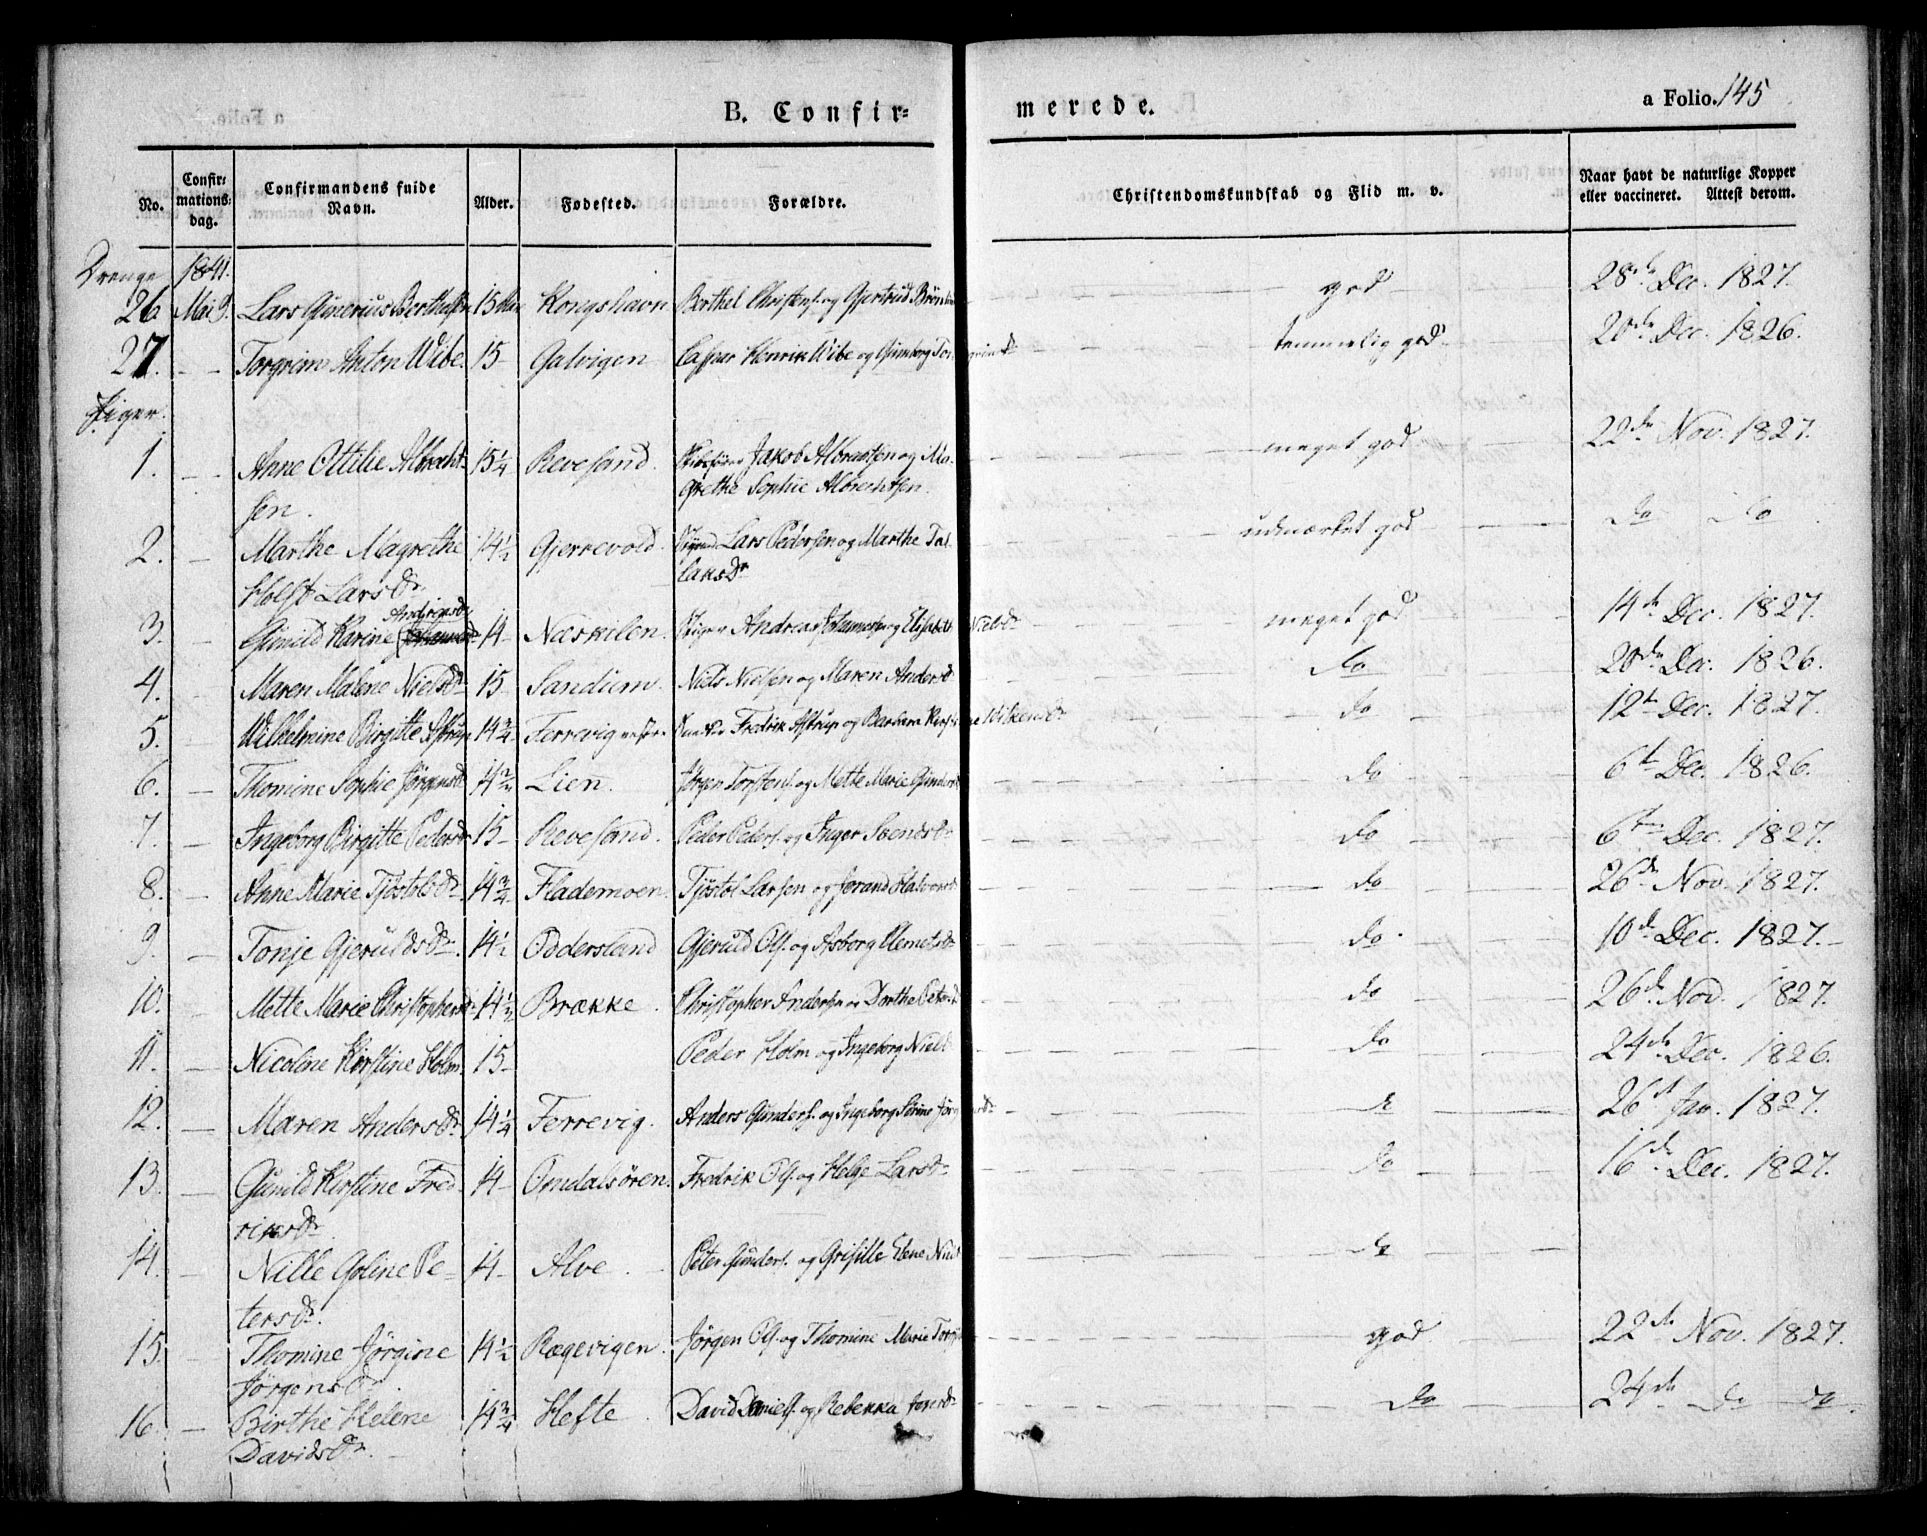 B. Confir= merede. a Folio. 145
No. Confir= mations= dag. Confirmandens fulde Navn. Alder. Fødested. Forældre. Christendomskundskab og Flid m. v. Naar havt de naturlige Kopper eller vaccineret. Attest derom.
Drenge 1841.
26 Mai 9. Lars Gunerius Berthelsen 15 Kongshavn Berthel Christens. og Gjertrud god 28de Dec. 1827.
27. - - Torgrim Anton Wibe. 15 - Galvigen Casper Henrik Wibe og Gunborg temmelig god 20de Dec. 1826.
Piger.
1. - - Anne Ottilie Albrecht- 15 1/4 Revesand. Jakob Albrechtsen og Ma- meget god 22de Nov. 1827.
sen. grethe Sophie Albrechtsen.
2. - Marthe Magrethe 14 1/2 Gjerrevold. Lars Pedersen og Marthe Tal- udmærket god Do Do
Holst Larsdr laksdr
Andreasdr
3. - Gunild Karine 14 - Næskilen. Andreas og Elisabeth Nielsdr meget god 14de Dec. 1827.
4. - Maren Malene Nielsdr 15 - Sandum. Niels Nielsen og Maren Andersd Do 20de Dec. 1826.
5. - Wilhelmine Birgitte Astrup 14 3/4 Ferrevig Fredrik Astrup og Barbara Do 12te Dec. 1827.
6. - Thomine Sophie Jørgensd 14 Lien. Jørgen Torstens. og Mette Marie Gundersd Do 6te Dec. 1826.
7. - Ingeborg Birgitte Pedersdr 15 - Revesand. Peder Peders. og Inger Svendsdr Do 6te Dec. 1827.
8. - Anne Marie Tjöstolsdr 14 3/4 Flademoen Tjöstol Larsen og Jorand Halvorsd Do 26de Nov. 1827.
9. - Tonje Gjeruldsdr. 14 1/2 Oddersland Gjeruld Ols. og Asborg Clemetsdr Do 10de Dec. 1827. -
10. - Mette Marie Christophersd 14 1/2 Brække. Christopher Andersen og Dorthe Petersd Do 26de Nov. 1827.
11. - Nicoline Kirstine Holm. 15 - Peder Holm og Ingeborg Nielsd Do 24de Dec. 1826.
12. - Maren Andersdr. 14 1/4 Ferrevig. Anders Gunders. og Ingeborg Sörine 26de Jan. 1827.
13. - Gunild Kirstine Fred- 14 - Omdalsören. Fredrik Ols. og Helje Larsdr Do 16de Dec. 1827.
riksdr
14. - Nille Goline Pe- 14 - Alve. Peter Gunders. og Grisille Elene Nielsd Do
tersdr.
15. - Thomine Jörgine 14 1/2 Rægevigen. Jørgen Ols. og Thomine Marie god 22de Nov. 1827.
Jørgensdr.
16. - Birthe Helene 14 3/4 Hefte. David Daniels. og Rebekka Do 24de Do Do.
Davidsdr.